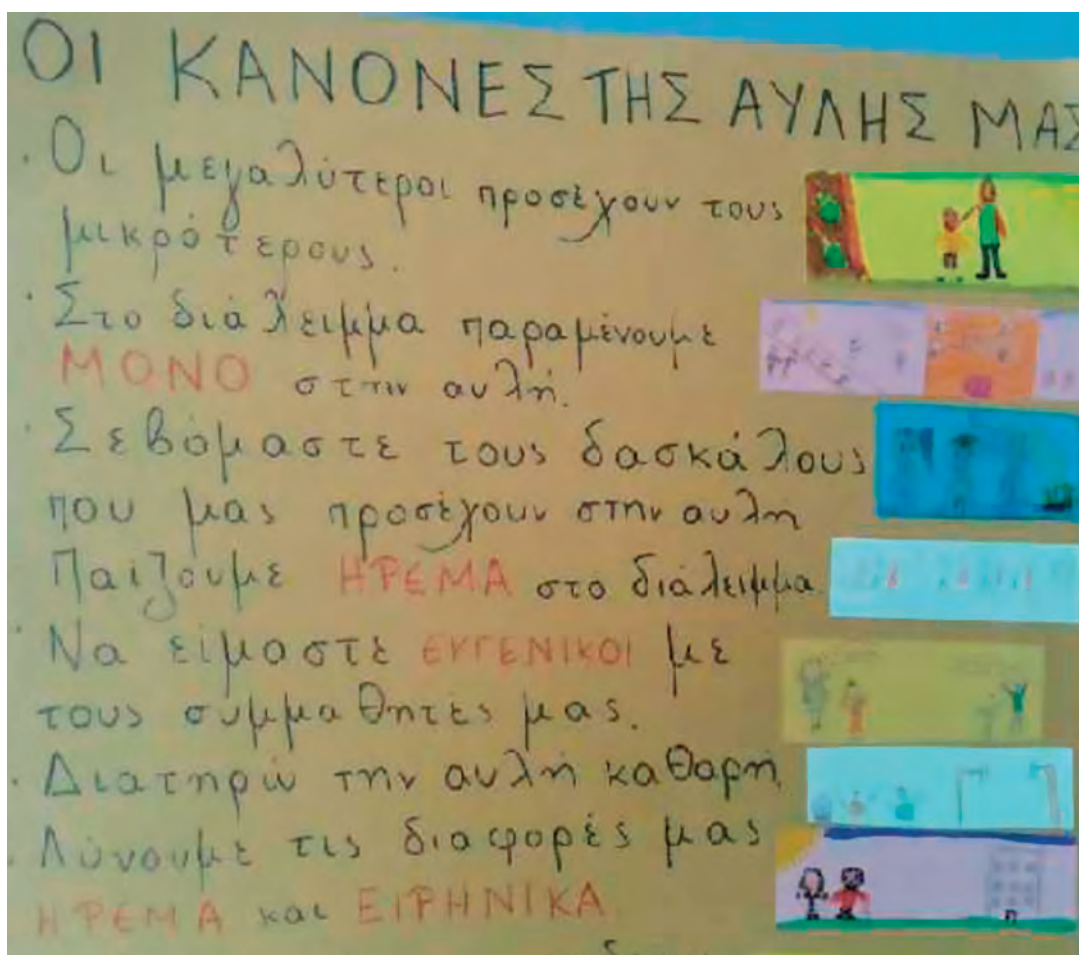 ΟΙ ΚΑΝΟΝΕΣ ΤΗΣ ΑΥΛΗΣ ΜΑΣ
· Οι μεγαλύτεροι προσέχουν τους
μικρότερους.
· Στο διάλειμμα παραμένουμε
ΜΟΝΟ στην αυλή.
· Σεβόμαστε τους δασκάλους
που μας προσέχουν στην αυλή
Παίζουμε ΗΡΕΜΑ στο διάλειμμα
· Να είμαστε ΕΥΓΕΝΙΚΟΙ με
τους συμμαθητές μας.
· Διατηρώ την αυλή καθαρή.
· Λύνουμε τις διαφορές μας
ΗΡΕΜΑ και ΕΙΡΗΝΙΚΑ